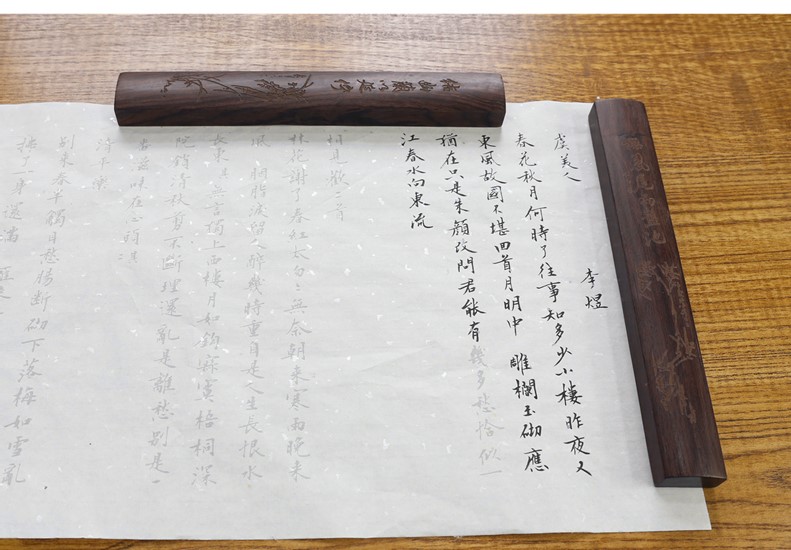 虞美人 李煜
春花秋月何時了往事知多少小樓昨夜又
東風故國不堪回首月明中 雕欄玉砌應
猶在只是朱顏改問君能有幾多愁恰似一
江春水向東流
相見歡二首
林花謝了春紅太匆〻無奈朝來寒雨晚來
風胭脂淚留人醉幾時重自是人生長恨水
長東 無言獨上西樓月如鉤寂寞梧桐深
院鎖清秋剪不斷理還亂是離愁別是一
番滋味在心頭
清平樂
別來春半觸目愁腸斷砌下落梅如雪亂
拂了一身還滿 雁來